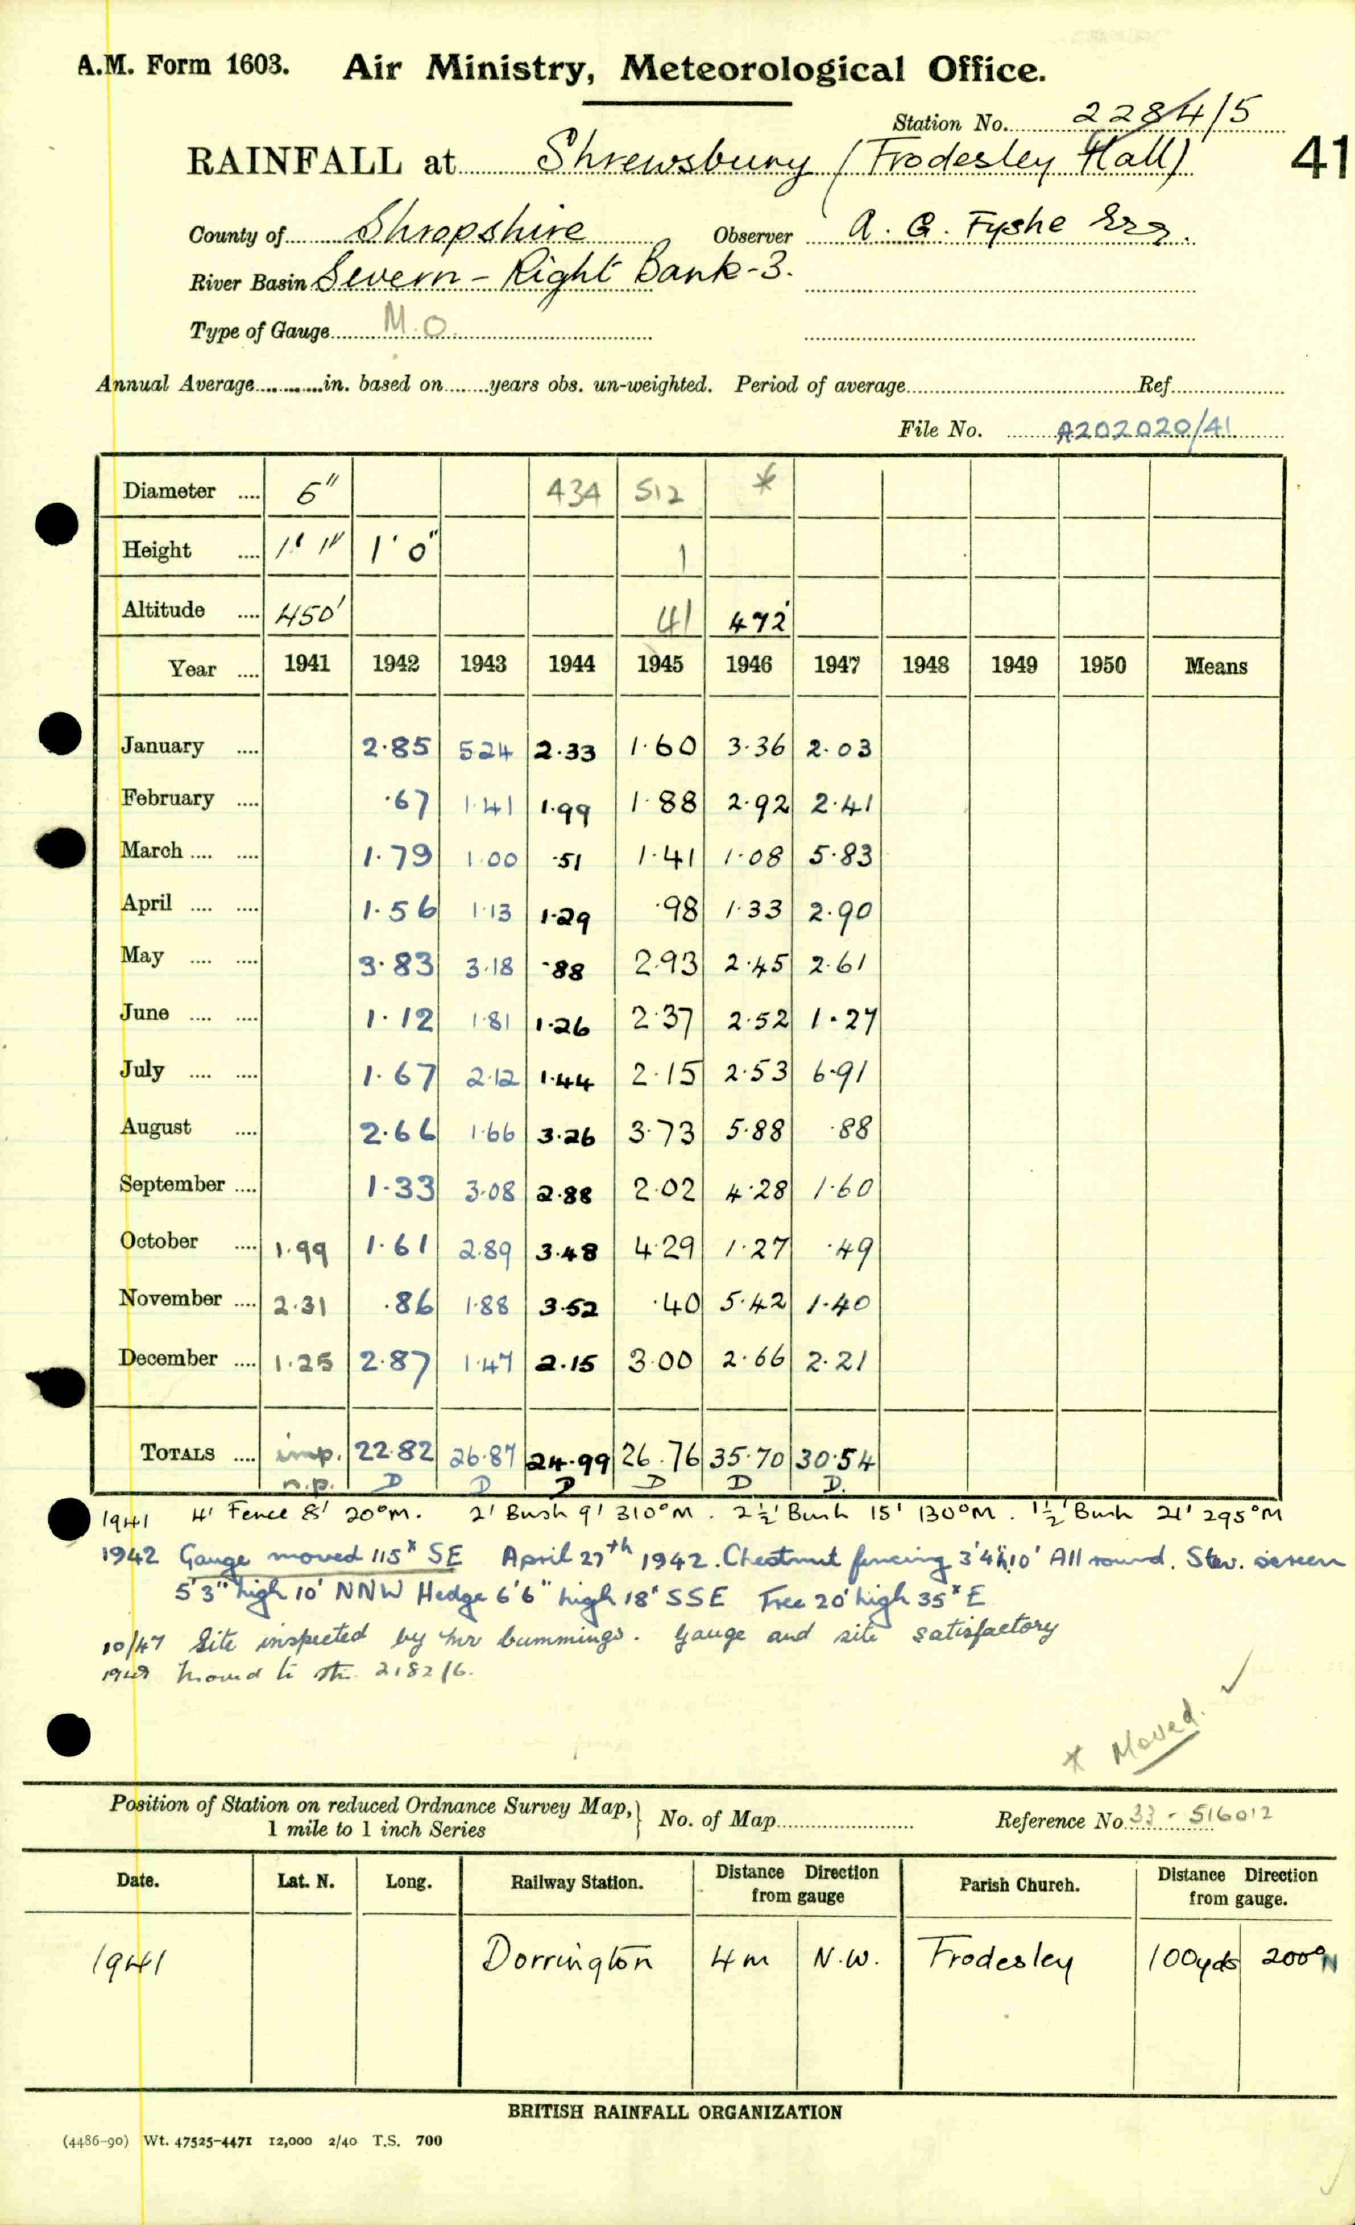 A.M. Form 1603. Air Ministry, Meteorological Office.
Station No. 2284/5
RAINFALL at Shrewsbury (Frodesley Hall) 41
County of Shropshire Observer A. G. Fyshe Esq.
River Basin Severn - Right Bank-3.
Type of Gauge M.O.
Annual Average in. based on years obs. un-weighted. Period of average Ref.
File No. A202020/41
Diameter 5" 434 512 *
Height 1' 1" 1' 0" 1
Altitude 450' 41 472'
Year 1941 1942 1943 1944 1945 1946 1947 1948 1949 1950 Means
January 2.85 5.24 2.33 1.60 3.36 2.03
February .67 1.41 1.99 1.88 2.92 2.41
March 1.79 1.00 .51 1.41 1.08 5.83
April 1.56 1.13 1.29 .98 1.33 2.90
May 3.83 3.18 .88 2.93 2.45 2.61
June 1.12 1.81 1.26 2.37 2.52 1.27
July 1.67 2.12 1.44 2.15 2.53 6.91
August 2.66 1.66 3.26 3.73 5.88 .88
September 1.33 3.08 2.88 2.02 4.28 1.60
October 1.99 1.61 2.89 3.48 4.29 1.27 .49
November 2.31 .86 1.88 3.52 .40 5.42 1.40
December 1.25 2.87 1.47 2.15 3.00 2.66 2.21
TOTALS imp. 22.82 26.87 24.99 26.76 35.70 30.54
n.p. D D D D D D.
1941 4' Fence 8' 20°M. 2' Bush 9' 310°M. 2½' Bush 15' 130°M. 1½' Bush 21' 295°M
1942 Gauge moved 115ˣ SE April 27th 1942. Chestnut fencing 3'4" 10' All round. Stev. screen
5'3" high 10' NNW Hedge 6'6" high 18ˣ SSE Tree 20' high 35ˣ E
10/47 Site inspected by Mr Cummings. Gauge and site satisfactory
1948 Moved to stn. 2182/6.
* Moved. ✓
Position of Station on reduced Ordnance Survey Map, 1 mile to 1 inch Series } No. of Map Reference No. 33 - 516012
Date. Lat. N. Long. Railway Station. Distance Direction from gauge Parish Church. Distance Direction from gauge.
1941 Dorrington 4m N.W. Frodesley 100yds 200° N
BRITISH RAINFALL ORGANIZATION
(4486-90) Wt. 47525-4471 12,000 2/40 T.S. 700